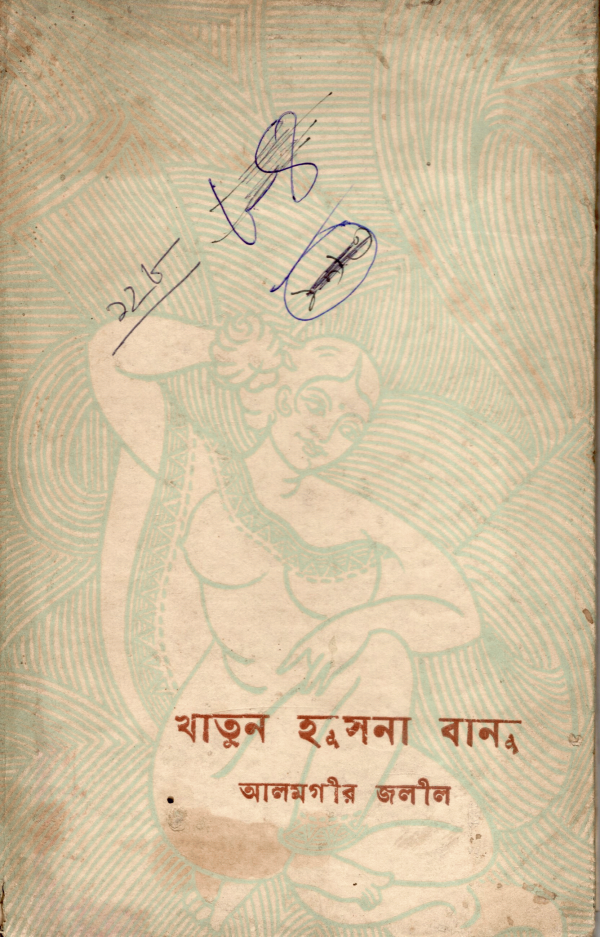 ২২৮
খাতুন হুসনা বানু
আলমগীর জলীল